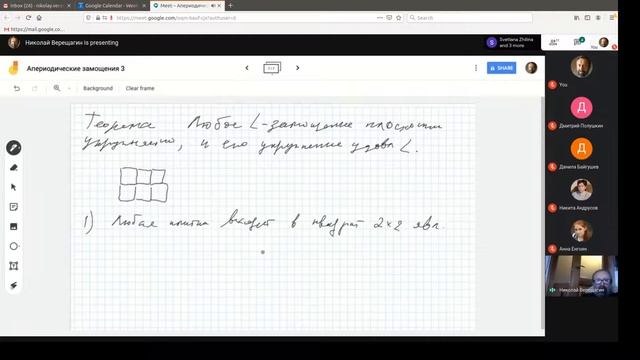 Inbox (24) - nikolay.ver
Google Calendar - Week
Meet – Апериодически
https://meet.google.com
https://mail.google.co...
Николай Верещагин is presenting
Svetlana Zhilina
and 3 more
You
Апериодические замощения 3
SHARE
Background
Clear frame
Теорема Любое L-замощение плоскости
укрупняемо, и его укрупнение удовл L.
1) Любая плитка входит в квадрат 2×2 явл.
You
Дмитрий Полушкин
Данила Байгушев
Никита Андрусов
Анна Енгоян
Николай Верещагин